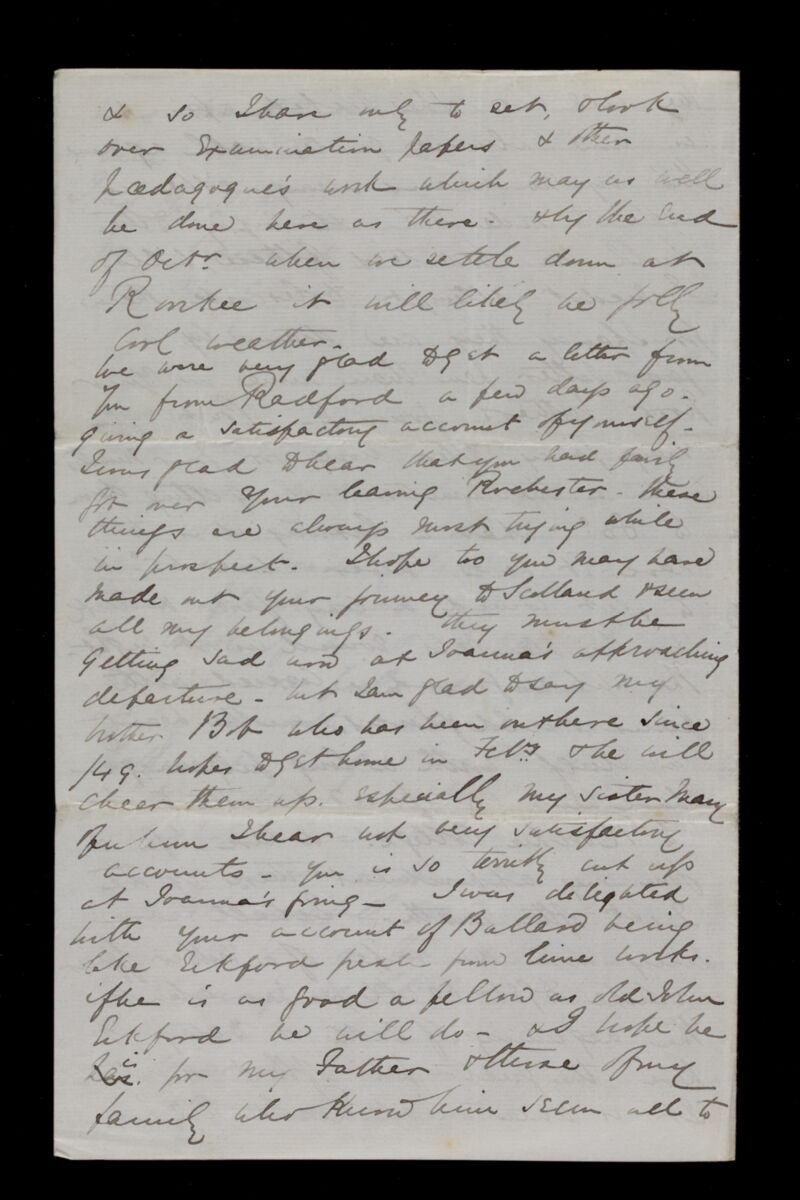 & so I have only to set, & look
over Examination papers & other
Pædagogue's work which may as well
be done here as there. & by the End
of Octr. when we settle down at
Roorkee it will likely be jolly
cool weather.
We were very glad to get a letter from
you from Radford a few days ago.
giving a satisfactory account of yourself.
I was glad to hear that you had fairly
got over your leaving Rochester. these
things are always most trying while
in prospect. I hope too you may have
made out your journey to Scotland & seen
all my belongings. They must be
getting sad now at Joanna's approaching
departure. but I am glad to say my
brother Bob who has been out here since
/49. hopes to get home in Feby. & he will
cheer them up. especially my sister Mary
of whom I hear not very satisfactory
accounts. is so terribly cut up
at Joanna's going. I was delighted
with your account of Ballard being
like Eckford fresh from lime works.
if he is as good a fellow as old John
Eckford he will do. & I hope he
is. for my Father & those of my
family who know him seem all to